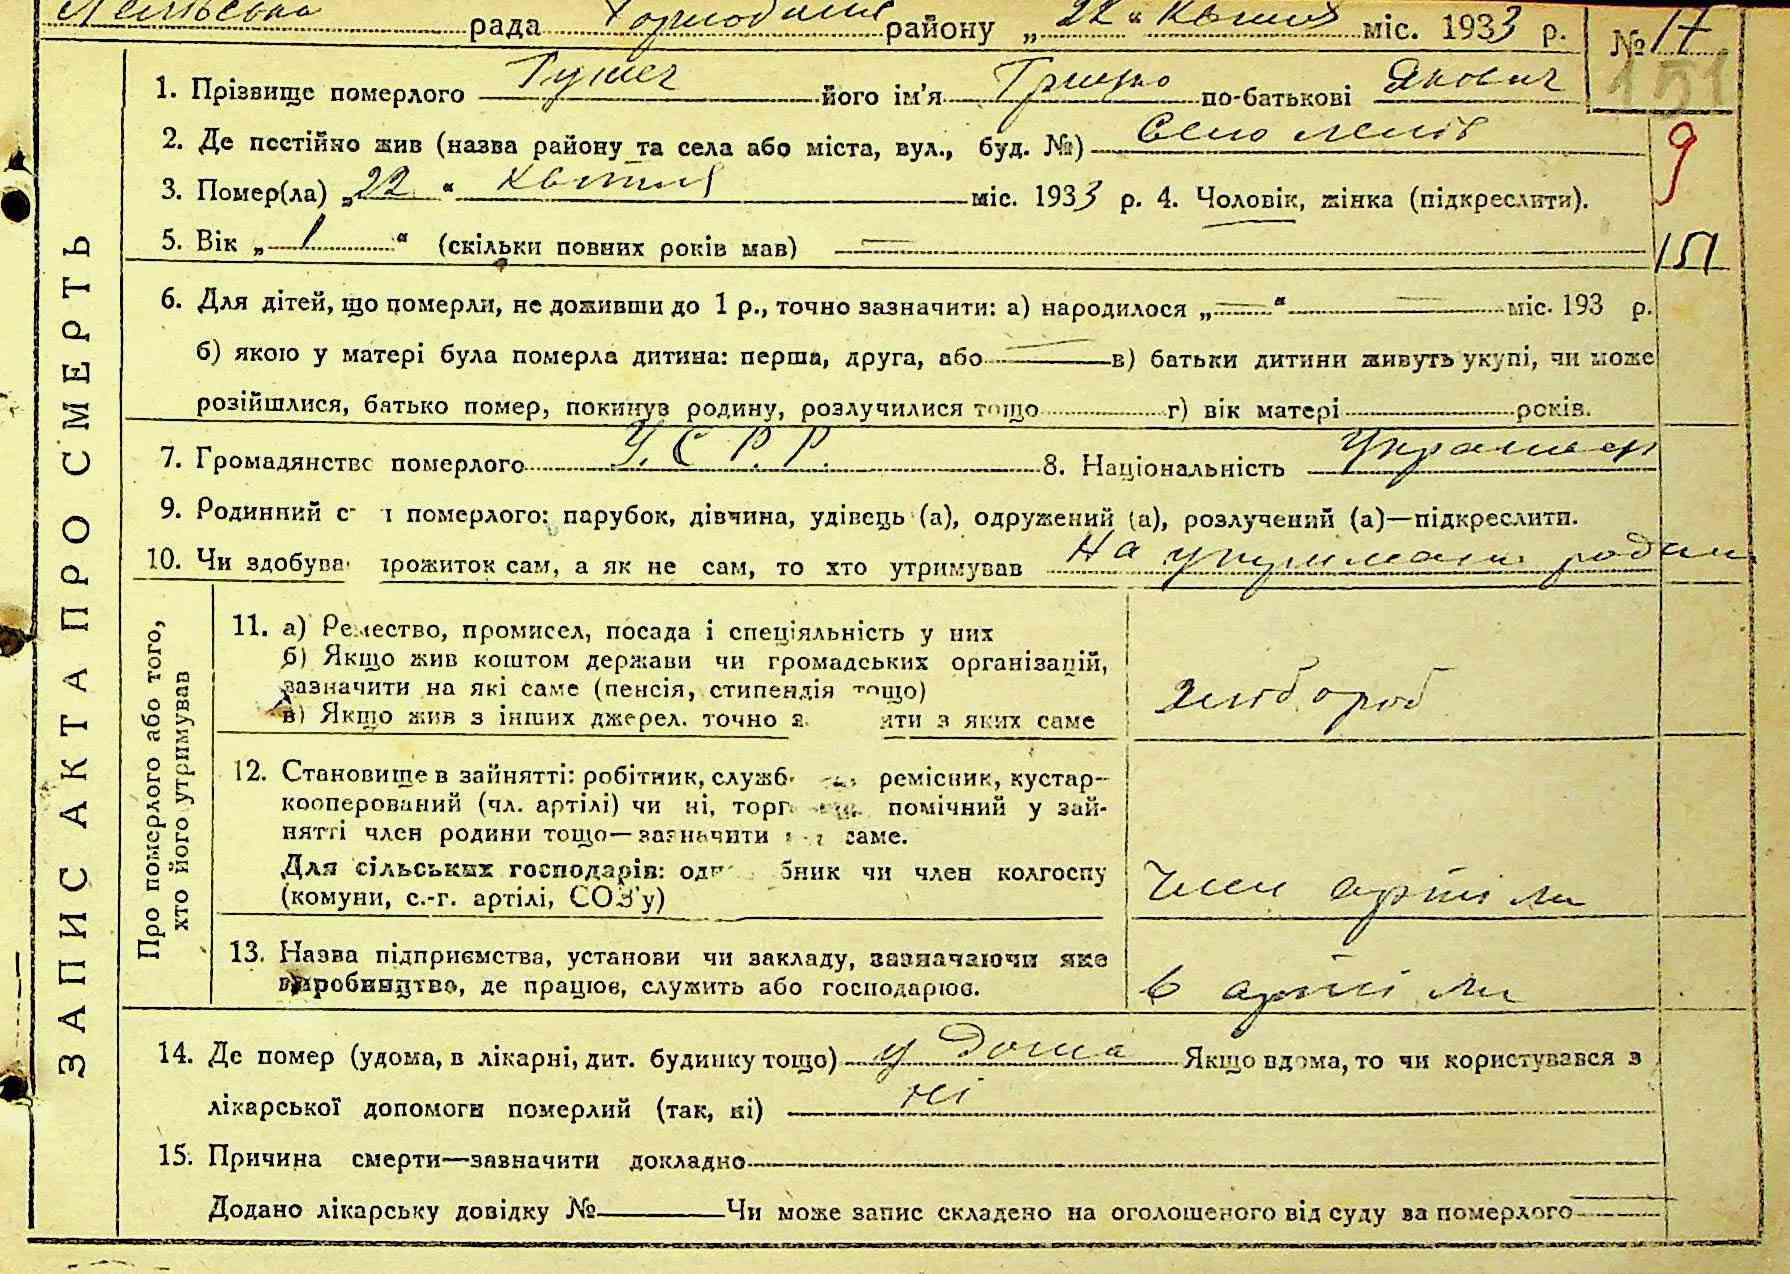 рада району „22“ Квітня міс. 1933 р. № 17
151
1. Прізвище померлого його ім'я Грицко по-батькові Якович
2. Де постійно жив (назва району та села або міста, вул., буд. №) Село
9
3. Помер(ла) „22“ Квітня міс. 1933 р. 4. Чоловік, жінка (підкреслити).
5. Вік „1“ (скільки повних років мав) —
151
6. Для дітей, що померли, не доживши до 1 р., точно зазначити: а) народилося „—“ — міс. 193 р.
б) якою у матері була померла дитина: перша, друга, або — в) батьки дитини живуть укупі, чи може
розійшлися, батько помер, покинув родину, розлучилися тощо г) вік матері років.
7. Громадянство померлого У.С.Р.Р. 8. Національність Українец
9. Родинний с і померлого: парубок, дівчина, удівець (а), одружений (а), розлучений (а)—підкреслити.
10. Чи здобува прожиток сам, а як не сам, то хто утримував на утриманні родини
ЗАПИС АКТА ПРО СМЕРТЬ
Про померлого або того,
хто його утримував
11. а) Ремество, промисел, посада і спеціяльність у них
б) Якщо жив коштом держави чи громадських організацій,
зазначити на які саме (пенсія, стипендія тощо)
в) Якщо жив з інших джерел. точно з яти з яких саме
хлібороб
12. Становище в зайнятті: робітник, служб ремісник, кустар-
кооперований (чл. артілі) чи ні, торг помічний у зай-
нятті член родини тощо—зазначити саме.
Для сільських господарів: од бник чи член колгоспу
(комуни, с.-г. артілі, СОЗ'у)
Член артіли
13. Назва підприємства, установи чи закладу, зазначаючи яке
виробництво, де працює, служить або господарює.
в артіли
14. Де помер (удома, в лікарні, дит. будинку тощо) у дома Якщо вдома, то чи користувався з
лікарської допомоги померлий (так, ні) ні
15. Причина смерти—зазначити докладно
Додано лікарську довідку № Чи може запис складено на оголошеного від суду за померлого —